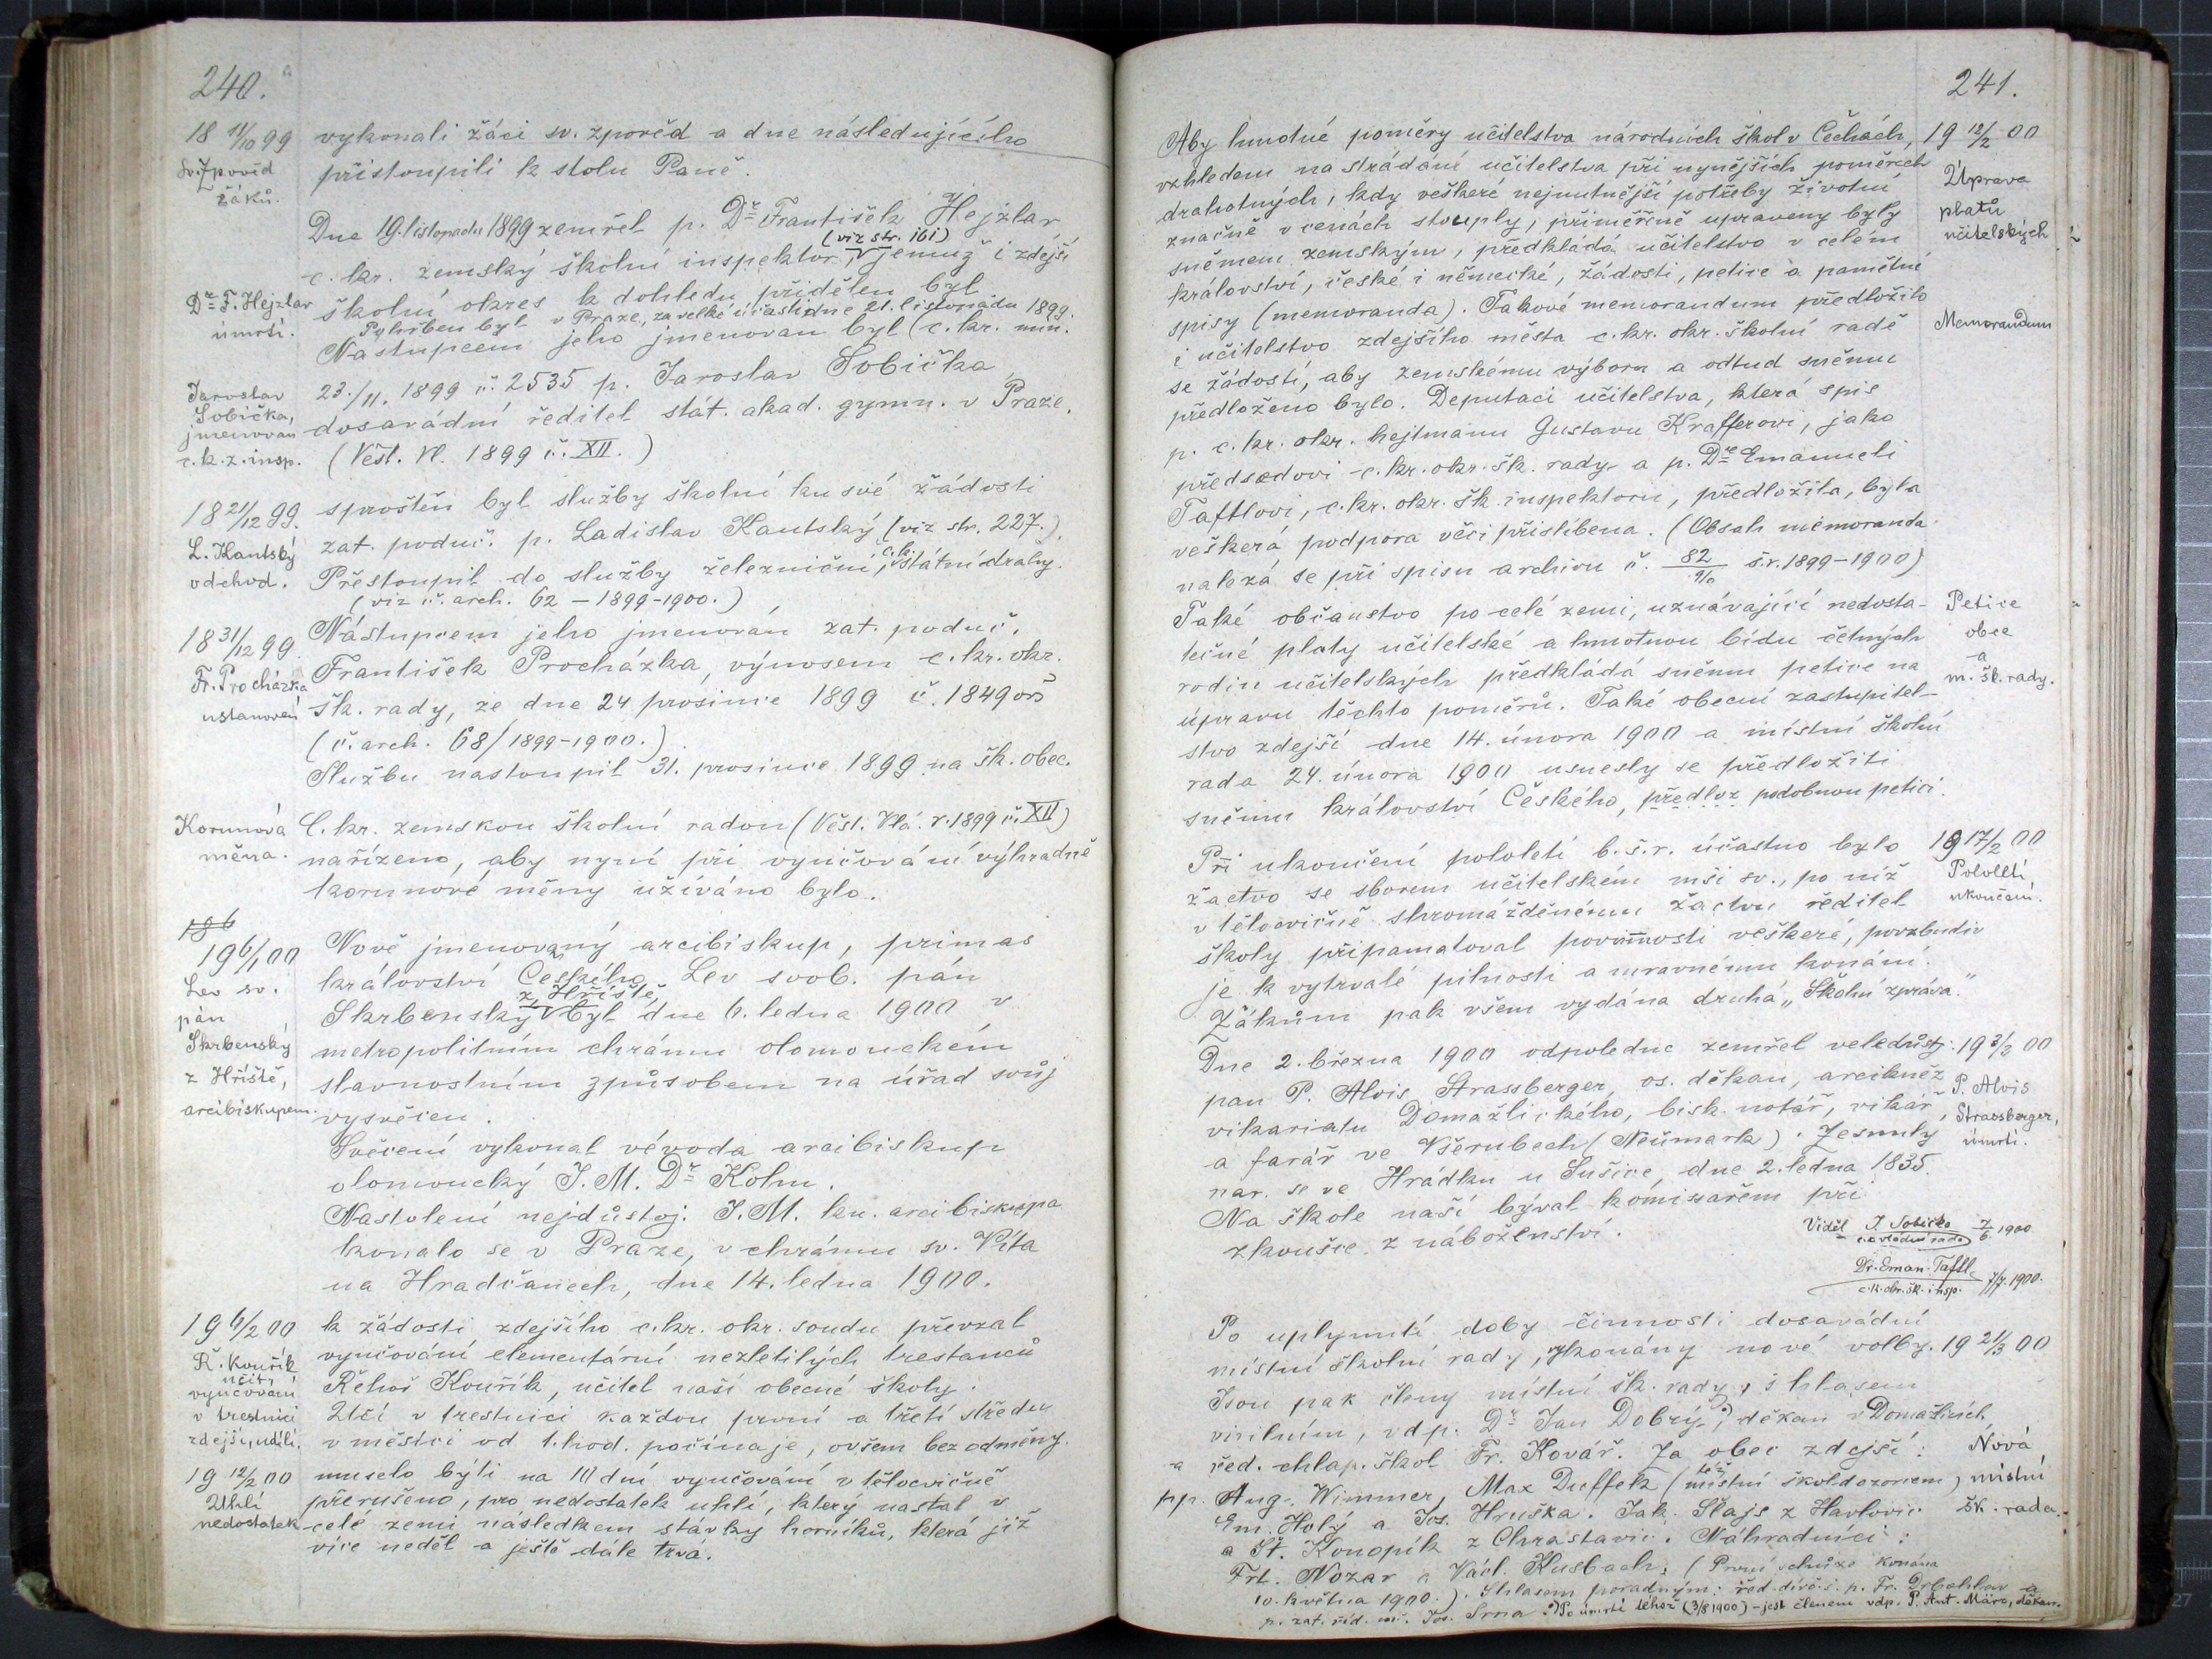 240.
18 11/10 99 vykonali žáci sv. zpověd a dne následujícího
Sv. Zpověd žáků.
přistoupili k stolu Páně.
Dne 19. listopadu 1899 zemřel p. Dr František Hejzlar
(viz str. 161)
c. kr. zemský školní inspektor, jemuž i zdejší
Dr F. Hejzlar úmrtí.
školní okres k dohledu přidělen byl.
Pohřben byl v Praze, za velké účasti dne 21. listopadu 1899.
Nástupcem jeho jmenován byl (c. kr. min.
23./11. 1899 č. 2535 p. Jaroslav Sobička,
Jaroslav Sobička, jmenován c. k. z. insp.
dosavádní ředitel stát. akad. gymn. v Praze.
(Věst. Vl. 1899 č. XII.)
18 21/12 99. sproštěn byl služby školní ku své žádosti
L. Kautský odchod.
zat. poduč. p. Ladislav Kautský (viz str. 227.).
Přestoupil do služby železniční, c. k. státní dráhy.
(viz č. arch. 62 – 1899-1900.)
18 31/12 99. Nástupcem jeho jmenován zat. poduč.
Fr. Procházka ustanovení
František Procházka, výnosem c. kr. okr.
šk. rady, ze dne 24 prosince 1899 č. 1849 oš
(č. arch. 68/1899-1900.)
Službu nastoupil 31. prosince 1899 na šk. obec.
Korunová měna.
C. kr. zemskou školní radou (Věst. Vlá. r. 1899 č. XII)
nařízeno, aby nyní při vyučování výhradně
korunové měny užíváno bylo.
186
19 6/1 00 Nově jmenovaný arcibiskup, primas
Lev sv. pán Skrbenský z Hříště, arcibiskupem.
království Českého, Lev svob. pán
Skrbenský z Hříště, byl dne 6. ledna 1900 v
metropolitním chrámu olomouckém
slavnostním způsobem na úřad svůj
vysvěcen.
Svěcení vykonal vévoda arcibiskup
olomoucký J. M. Dr Kohn.
Nastolení nejdůstoj. J. M. kn. arcibiskupa
konalo se v Praze, v chrámu sv. Víta
na Hradčanech, dne 14. ledna 1900.
19 6/2 00 k žádosti zdejšího c. kr. okr. soudu převzal
Ř. Kouřík učit. vyučování v trestnici zdejší, udílí.
vyučování elementární nezletilých trestanců
Řehoř Kouřík, učitel naší obecné školy.
Učí v trestnici každou první a třetí středu
v měsíci od 1. hod. počínaje, ovšem bez odměny.
19 12/2 00 muselo býti na 10 dní vyučování v tělocvičně
Uhlí nedostatek
přerušeno, pro nedostatek uhlí, který nastal v
celé zemi následkem stávky horníků, která již
více neděl a ještě dále trvá.
241.
Aby hmotné poměry učitelstva národních škol v Čechách, 19 12/2 00
vzhledem na strádání učitelstva při nynějších poměrech
Úprava platů učitelských
drahotných, kdy veškeré nejnutnější potřeby životní
značně v cenách stouply, přiměřeně upraveny byly
sněmem zemským, předkládá učitelstvo v celém
království, české i německé, žádosti, petice a pamětné
spisy (memoranda). Takové memorandum předložilo
Memorandum
i učitelstvo zdejšího města c. kr. okr. školní radě
se žádostí, aby zemskému výboru a odtud sněmu
předloženo bylo. Deputaci učitelstva, která spis
p. c. kr. okr. hejtmanu Gustavu Krafferovi, jako
předsedovi c. kr. okr. šk. rady a p. Dr Emanueli
Tafflovi, c. kr. okr. šk. inspektoru, předložila, byla
veškerá podpora věci přislíbena. (Obsah memoranda
nalezá se při spisu archivu č. 82/910 š. r. 1899-1900)
Také občanstvo po celé zemi, uznávající nedosta-
Petice obce a m. šk. rady.
tečné platy učitelské a hmotnou bídu četných
rodin učitelských předkládá sněmu petice na
úpravu těchto poměrů. Také obecní zastupitel-
stvo zdejší dne 14. února 1900 a místní školní
rada 24. února 1900 usnesly se předložiti
sněmu království Českého, předlož podobnou petici.
Při ukončení pololetí b. š. r. účastno bylo 19 17/2 00
Pololetí ukončení.
žactvo se sborem učitelském mši sv., po níž
v tělocvičně shromážděnému žactvu ředitel
školy připamatoval povinnosti veškeré, povzbudiv
je k vytrvalé pilnosti a mravnému konání.
Žákům pak všem vydána druhá „Školní zpráva."
Dne 2. března 1900 odpoledne zemřel veledůstj. 19 3/2 00
P. Alois Strassberger, úmrtí.
pan P. Alois Strassberger, os. děkan, arcikněz
vikariatu Domažlického, bisk. notář, vikář,
a farář ve Všerubech (Neumark). Zesnulý
nar. se ve Hrádku u Sušice, dne 2. ledna 1835.
Na škole naší býval komisařem při
zkoušce z náboženství.
Viděl J. Sobička 7/6 1900
c. k. vládní rada
Dr. Eman. Taffl
c. k. okr. šk. insp. 7/7. 1900.
Po uplynutí doby činnosti dosavádní
místní školní rady, vykonány nové volby. 19 21/3 00
Jsou pak členy místní šk. rady, s hlasem
virilním, vdp. Dr Jan Dobrý, děkan v Domažlicích
a řed. chlap. škol Fr. Kovář. Za obec zdejší:
Nová místní šk. rada.
pp. Aug. Wimmer, Max Duffek (též místní školdozorcem)
Em. Holý a Jos. Hruška. Jak. Slajs z Havlovic
a Št. Konopík z Chrastavic. Náhradníci:
Frt. Nozar a Václ. Kusbach. (První schůze konána
10. května 1900.). S hlasem poradným: řed. dívč. š. p. Fr. Drbohlav a
p. zat. říd. uč. Jos. Srna. Po úmrtí téhož (3/8 1900) – jest členem vdp. P. Ant. Märo, děkan.